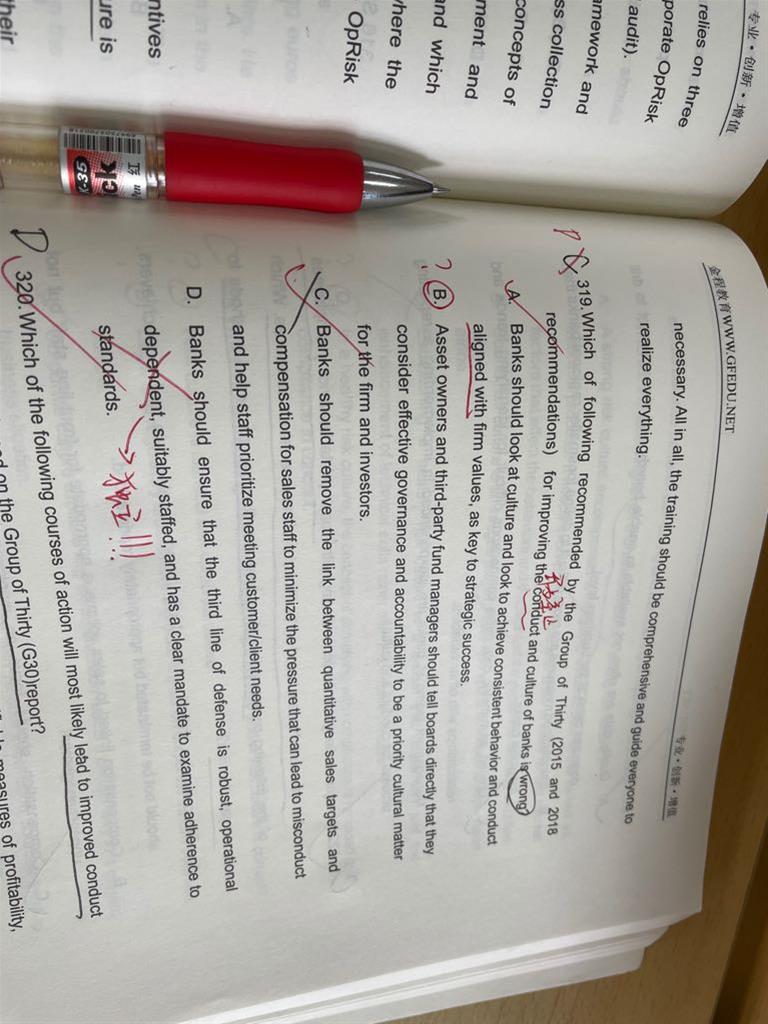 专业·创新·增值
relies on three
porate OpRisk
audit).
amework and
ss collection
concepts of
ment and
and which
where the
OpRisk
ntives
ure is
their
金程教育WWW.GFEDU.NET
专业·创新·增值
necessary. All in all, the training should be comprehensive and guide everyone to
realize everything.
319.Which of following recommended by the Group of Thirty (2015 and 2018
recommendations) for improving the conduct and culture of banks is wrong?
A. Banks should look at culture and look to achieve consistent behavior and conduct
aligned with firm values, as key to strategic success.
? B. Asset owners and third-party fund managers should tell boards directly that they
consider effective governance and accountability to be a priority cultural matter
for the firm and investors.
C. Banks should remove the link between quantitative sales targets and
compensation for sales staff to minimize the pressure that can lead to misconduct
and help staff prioritize meeting customer/client needs.
D. Banks should ensure that the third line of defense is robust, operational
dependent, suitably staffed, and has a clear mandate to examine adherence to
standards.
→ 独立!!!
D 320.Which of the following courses of action will most likely lead to improved conduct
ed on the Group of Thirty (G30)report?
measures of profitability,